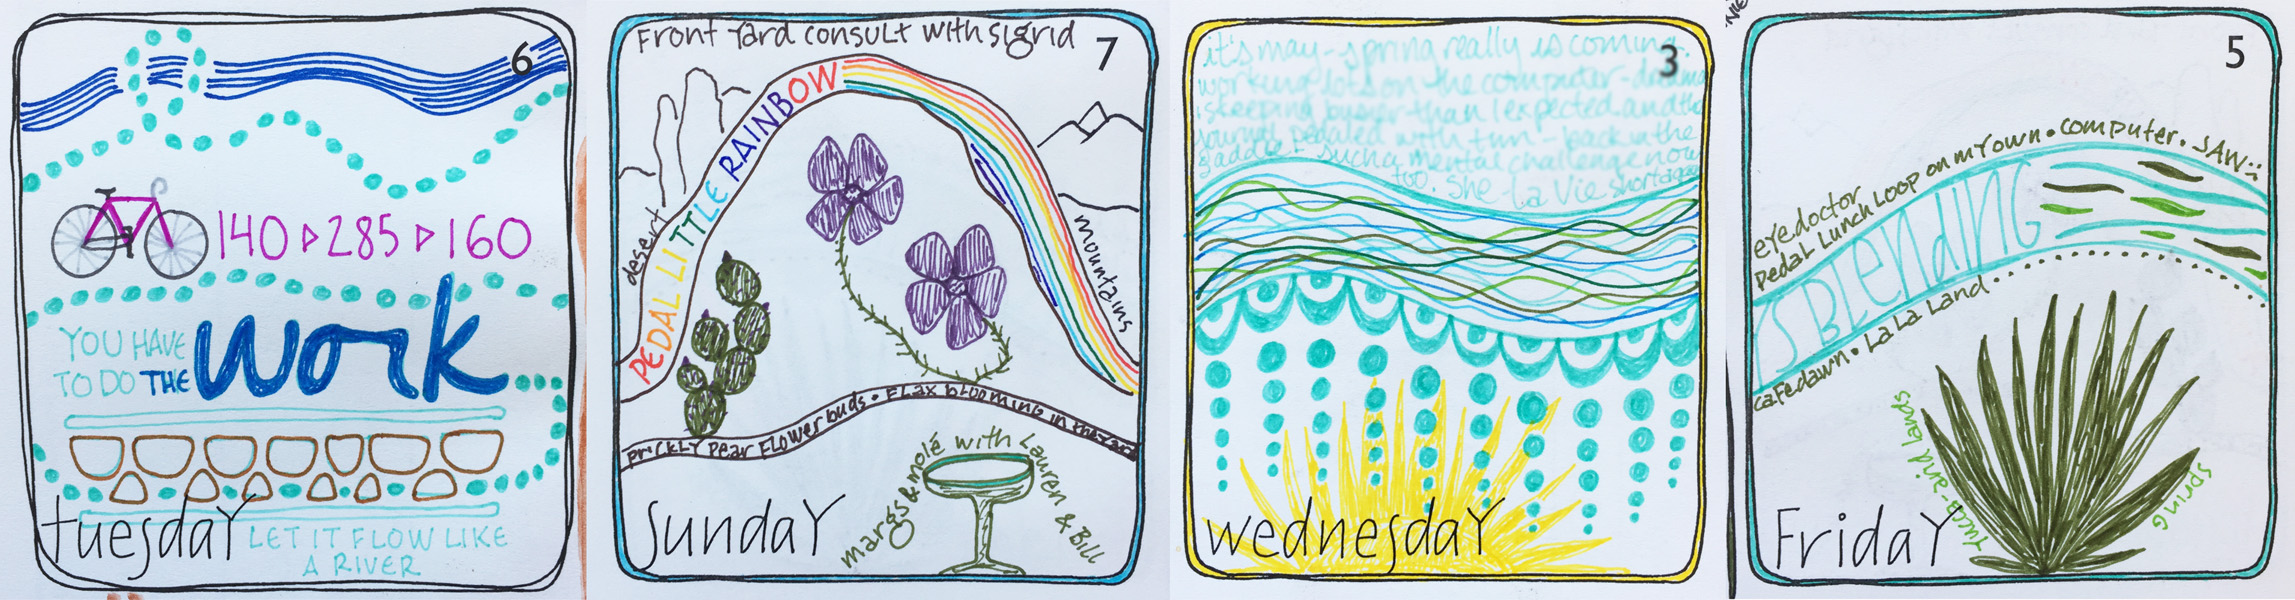 6
140 ▷ 285 ▷ 160
YOU HAVE
TO DO THE work
tuesday
LET IT FLOW LIKE
A RIVER
Front Yard consult with Sigrid
7
desert
PEDAL LITTLE RAINBOW
mountains
Prickly Pear Flower buds • Flax blooming in the yard
margs & molé with Lauren & Bill
Sunday
3
it's may - spring really is coming.
working lots on the computer -
is keeping busier than I expected and the
journal pedaled with - back in the
saddle! Such a mental challenge now
too. She La Vie
wednesday
5
eye doctor
Pedal Lunch Loop on my own • computer • SAW
IS BLENDING
cafe dawn • La La Land •
yucca - arid lands
spring
Friday